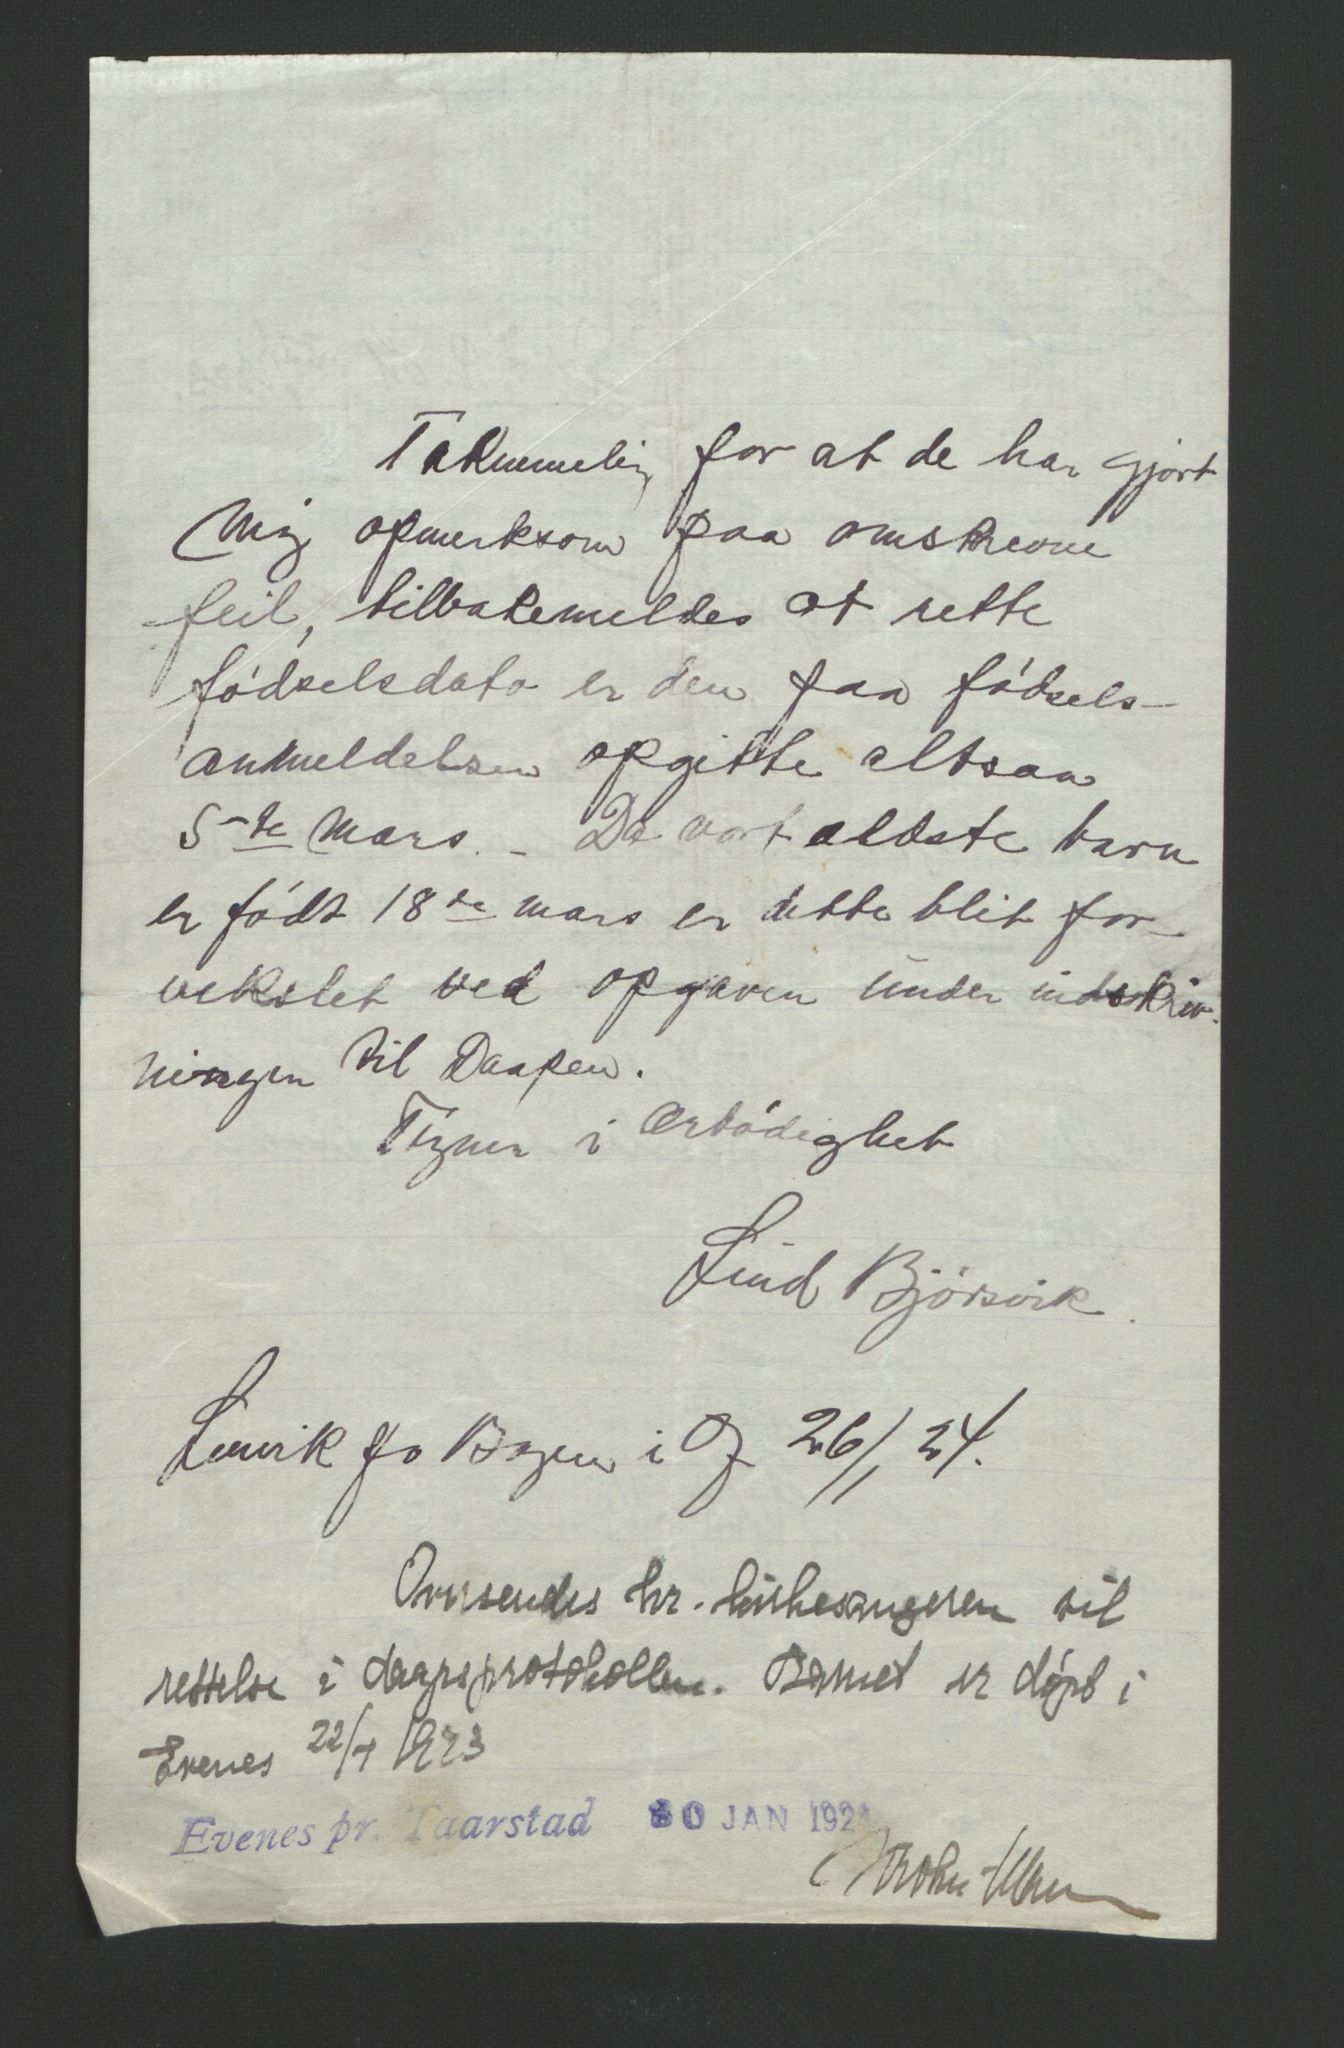 Taknemmelig for at de har gjort
Mig opmerksom paa omskrevne
feil, tilbakemeldes at rette
födselsdato er den paa födsels-
anmeldelsen opgitte altsaa
5-te Mars. - Da vort eldste barn
er födt 18de mars er dette blit for-
vekslet ved opgaven under indskriv-
ningen til Daapen.
Tegner i ærbödighet
Lind Björsvik.
Lenvik po Bogen i Of 26/1 24.
Oversendes hr. kirkesangeren til
rettelse i daapsprotokollen. Barnet er døpt i
Evenes 22/4 1923
Evenes pr. Taarstad 30 JAN 1924